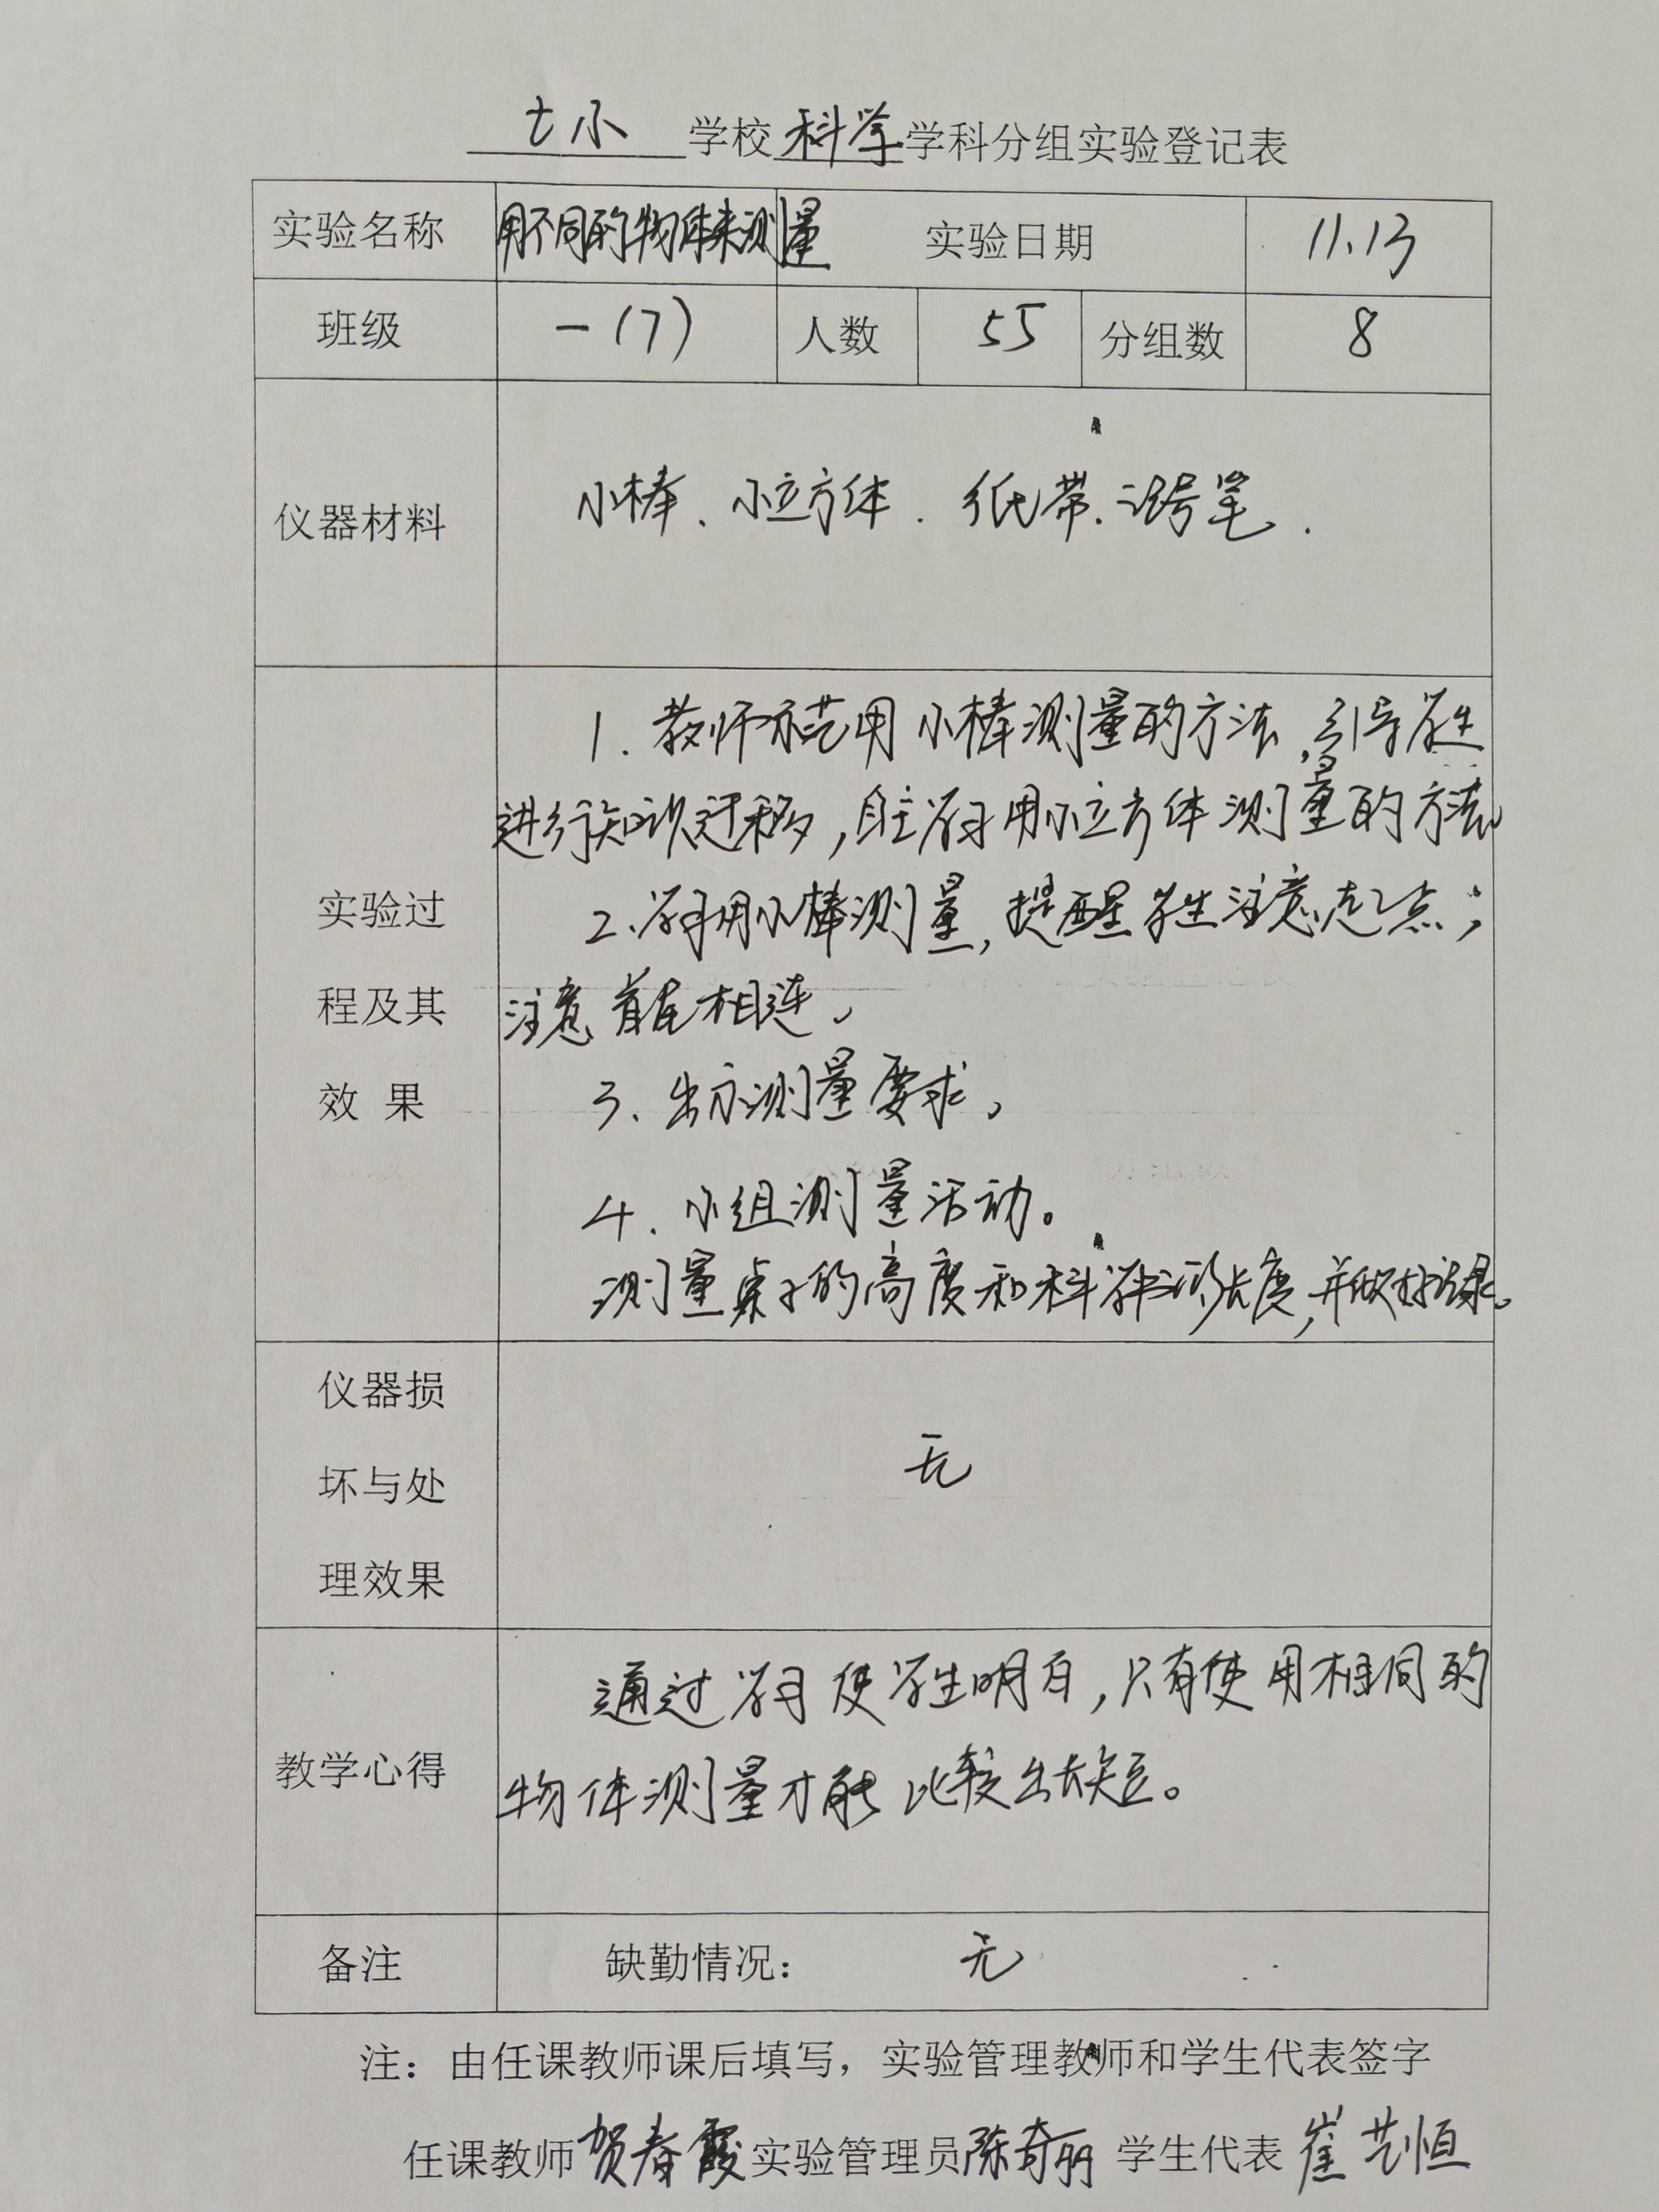 七小 学校 科学 学科分组实验登记表
实验名称 用不同的物体来测量 实验日期 11.13
班级 一(7) 人数 55 分组数 8
仪器材料 小棒、小立方体.纸带.记号笔.
1.教师示范用小棒测量的方法,引导学生
进行知识迁移,自主学习用小立方体测量的方法
2、学习用小棒测量,提醒学生注意起点;
注意首尾相连。
3、出示测量要求。
4.小组测量活动。
测量桌子的高度和科学书的长度,并做好记录。
实验过
程及其
效 果
仪器损
坏与处
理效果
无
通过学习使学生明白,只有使用相同的
物体测量才能比较出长短。
教学心得
备注 缺勤情况: 无
注:由任课教师课后填写,实验管理教师和学生代表签字
任课教师 贺春霞 实验管理员 陈奇丽 学生代表 崔艺恒